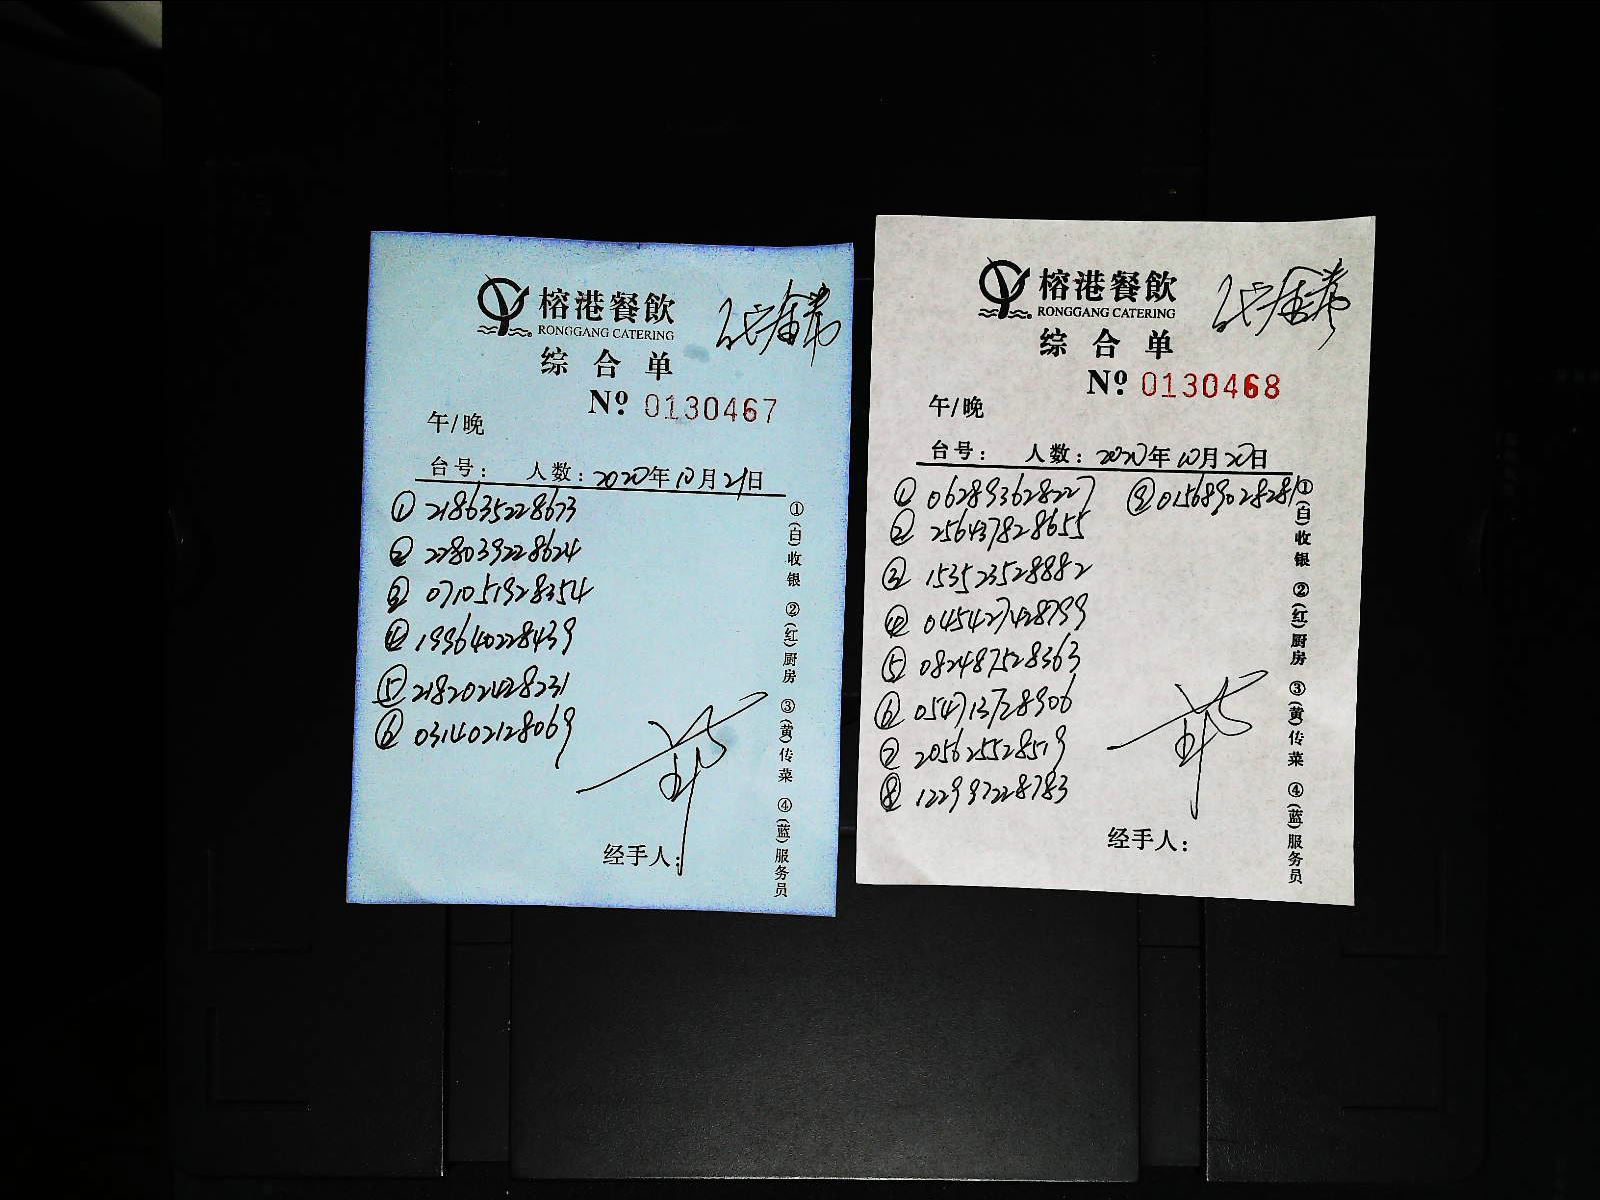 榕港餐飲
RONGGANG CATERING
综合单
Nº 0130467
午/晚
台号： 人数：2020年10月21日
① 218635228673
② 228039228624
③ 071051928354
④ 199640228439
⑤ 218202428231
⑥ 031402128069
经手人：
①(白)收银 ②(红)厨房 ③(黄)传菜 ④(蓝)服务员
榕港餐飲
RONGGANG CATERING
综合单
Nº 0130468
午/晚
台号： 人数：2020年10月20日
① 062893628227 ⑨ 015689028281
② 256437828655
③ 153523528882
④ 045427428799
⑤ 082487528363
⑥ 054713728906
⑦ 205625528519
⑧ 122997228783
经手人：
①(白)收银 ②(红)厨房 ③(黄)传菜 ④(蓝)服务员